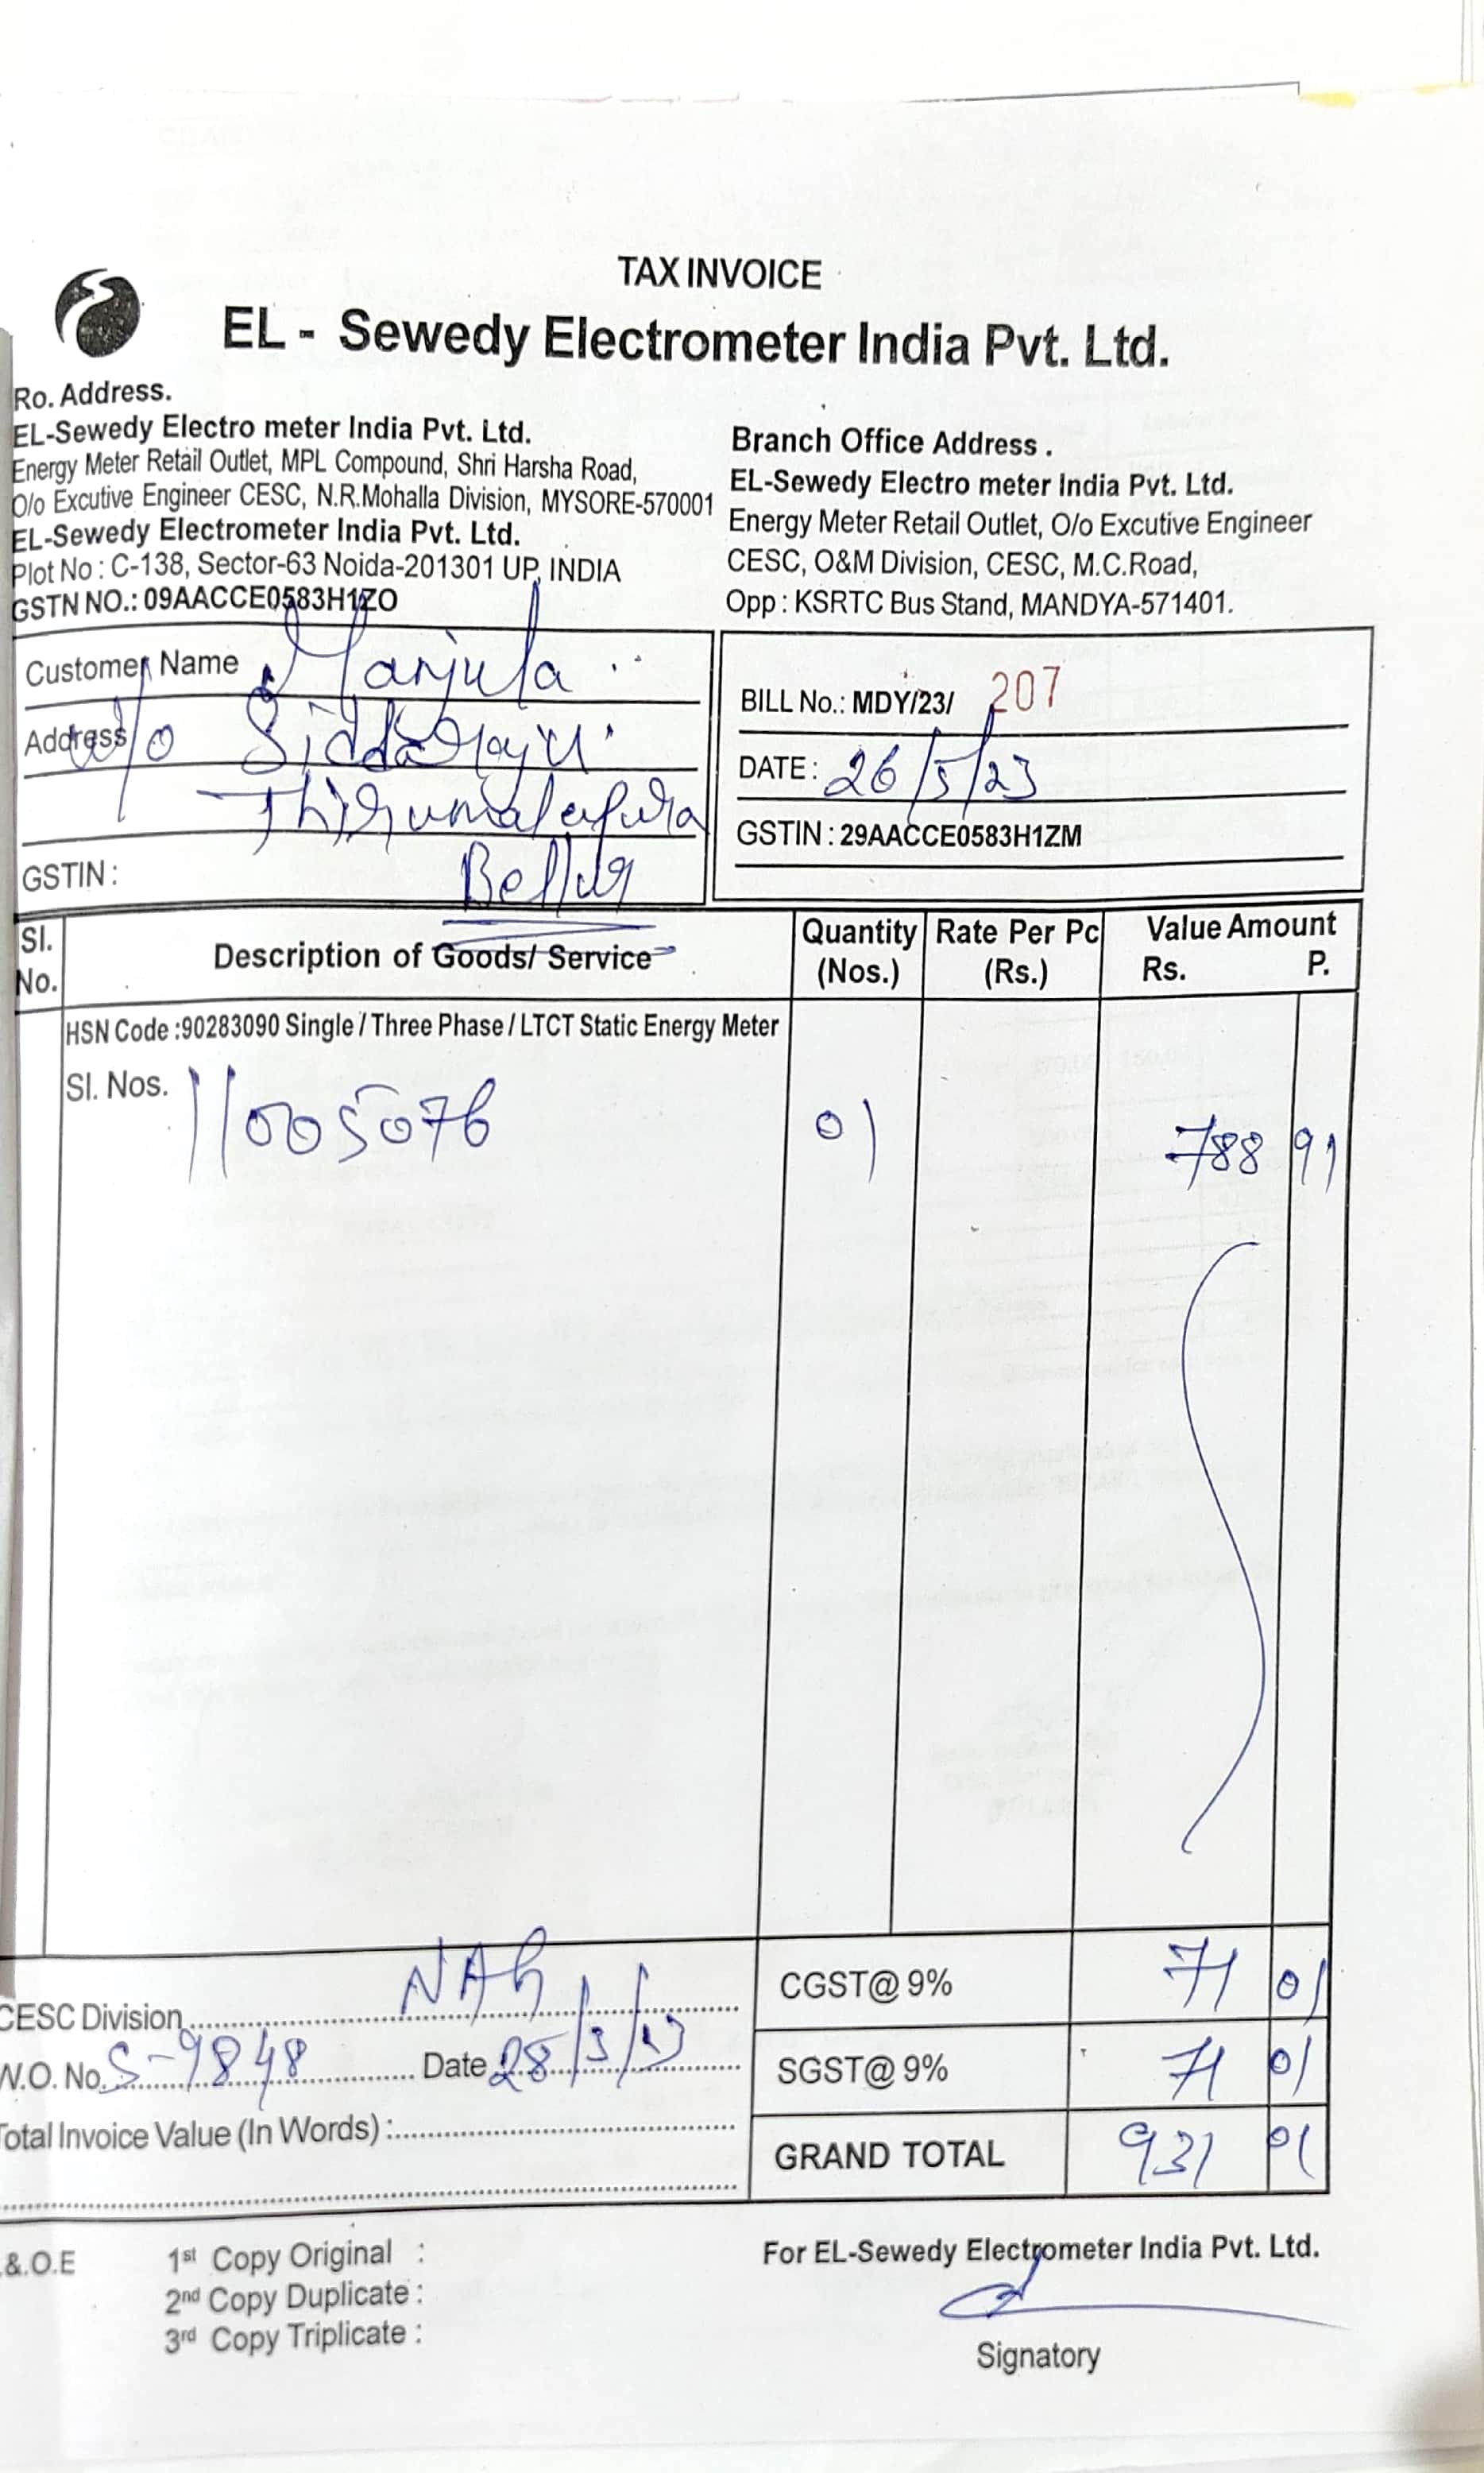 TAX INVOICE
EL - Sewedy Electrometer India Pvt. Ltd.
Ro. Address.
EL-Sewedy Electro meter India Pvt. Ltd.
Energy Meter Retail Outlet, MPL Compound, Shri Harsha Road,
O/o Excutive Engineer CESC, N.R.Mohalla Division, MYSORE-570001
EL-Sewedy Electrometer India Pvt. Ltd.
Plot No : C-138, Sector-63 Noida-201301 UP, INDIA
GSTN NO.: 09AACCE0583H1ZO
Branch Office Address .
EL-Sewedy Electro meter India Pvt. Ltd.
Energy Meter Retail Outlet, O/o Excutive Engineer
CESC, O&M Division, CESC, M.C.Road,
Opp : KSRTC Bus Stand, MANDYA-571401.
Customer Name Manjula
Address w/o Siddaraju
Thirumalapura
GSTIN : Bellur
BILL No.: MDY/23/ 207
DATE : 26/5/23
GSTIN : 29AACCE0583H1ZM
Sl. No. Description of Goods/ Service Quantity (Nos.) Rate Per Pc (Rs.) Value Amount Rs. P.
HSN Code :90283090 Single / Three Phase / LTCT Static Energy Meter
Sl. Nos. 11005076 01 788 91
CESC Division NAG CGST@ 9% 71 01
W.O. No. S-9848 Date 28/3/23 SGST@ 9% 71 01
Total Invoice Value (In Words) : GRAND TOTAL 931 01
.&.O.E 1st Copy Original :
2nd Copy Duplicate :
3rd Copy Triplicate :
For EL-Sewedy Electrometer India Pvt. Ltd.
Signatory